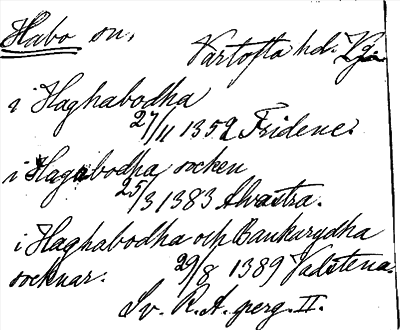 Habo sn.
Vartofta hd. Vg
i Haghabodha
27/11 1352 Fridene.
i Hagabodha socken
25/3 1383 Alvastra.
i Haghabodha och Bankarydha
socknar. 29/8 1389 Vadstena.
Sv. R. A. perg. II.